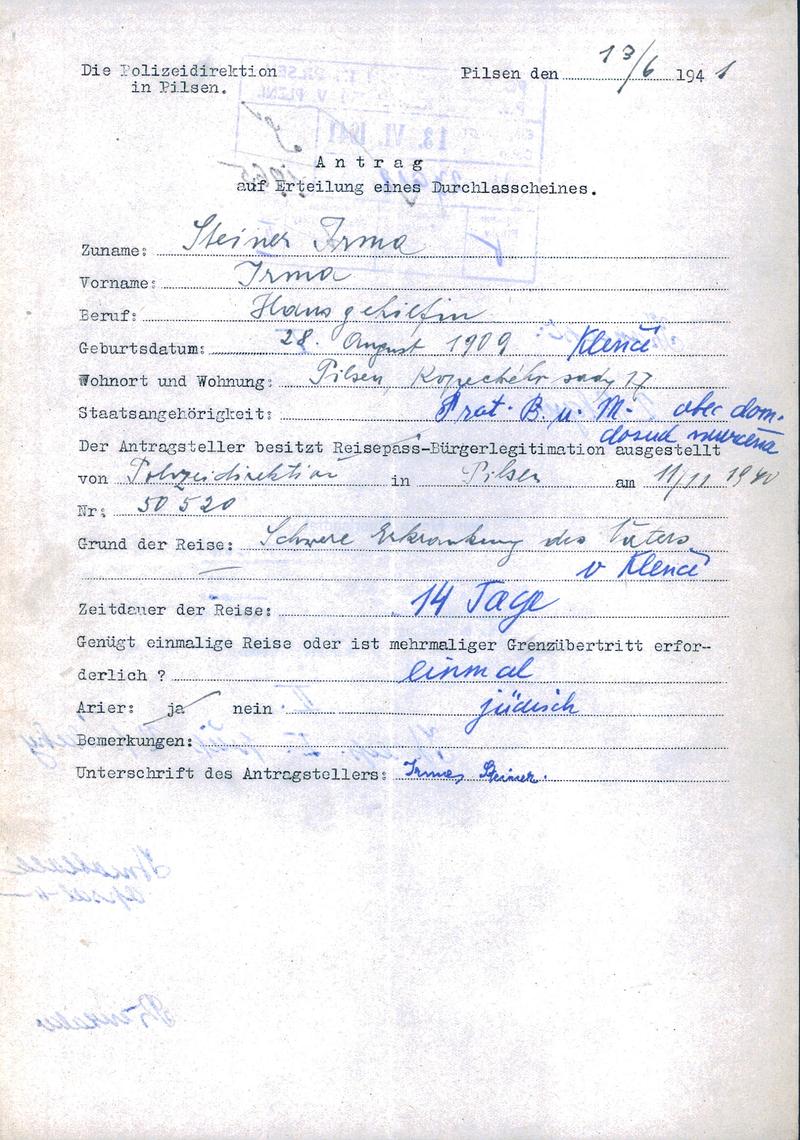 Die Polizeidirektion
in Pilsen.
Pilsen den 13/6 1941
Antrag
auf Erteilung eines Durchlasscheines.
Zuname: Steiner Irma
Vorname: Irma
Beruf: Hausgehilfin
Geburtsdatum: 28. August 1909 Klenčí
Wohnort und Wohnung: Pilsen, sady 17
Staatsangehörigkeit: Prot. B. u. M. obec dom.
dosud neurčena
Der Antragsteller besitzt Reisepass-Bürgerlegitimation ausgestellt
von Polizeidirektion in Pilsen am 11/11 1940
Nr: 50520
Grund der Reise: Schwere Erkrankung des Vaters
v Klenčí
Zeitdauer der Reise: 14 Tage
Genügt einmalige Reise oder ist mehrmaliger Grenzübertritt erfor-
derlich ? einmal
Arier: ja nein. jüdisch
Bemerkungen:
Unterschrift des Antragstellers: Irma Steiner.
13. VI. 1941